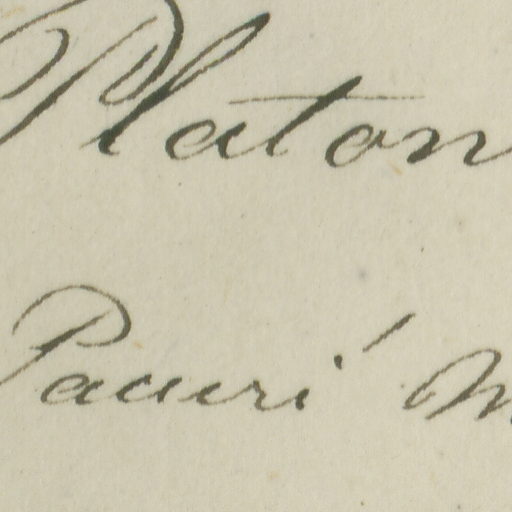 Platon
Paueri' M